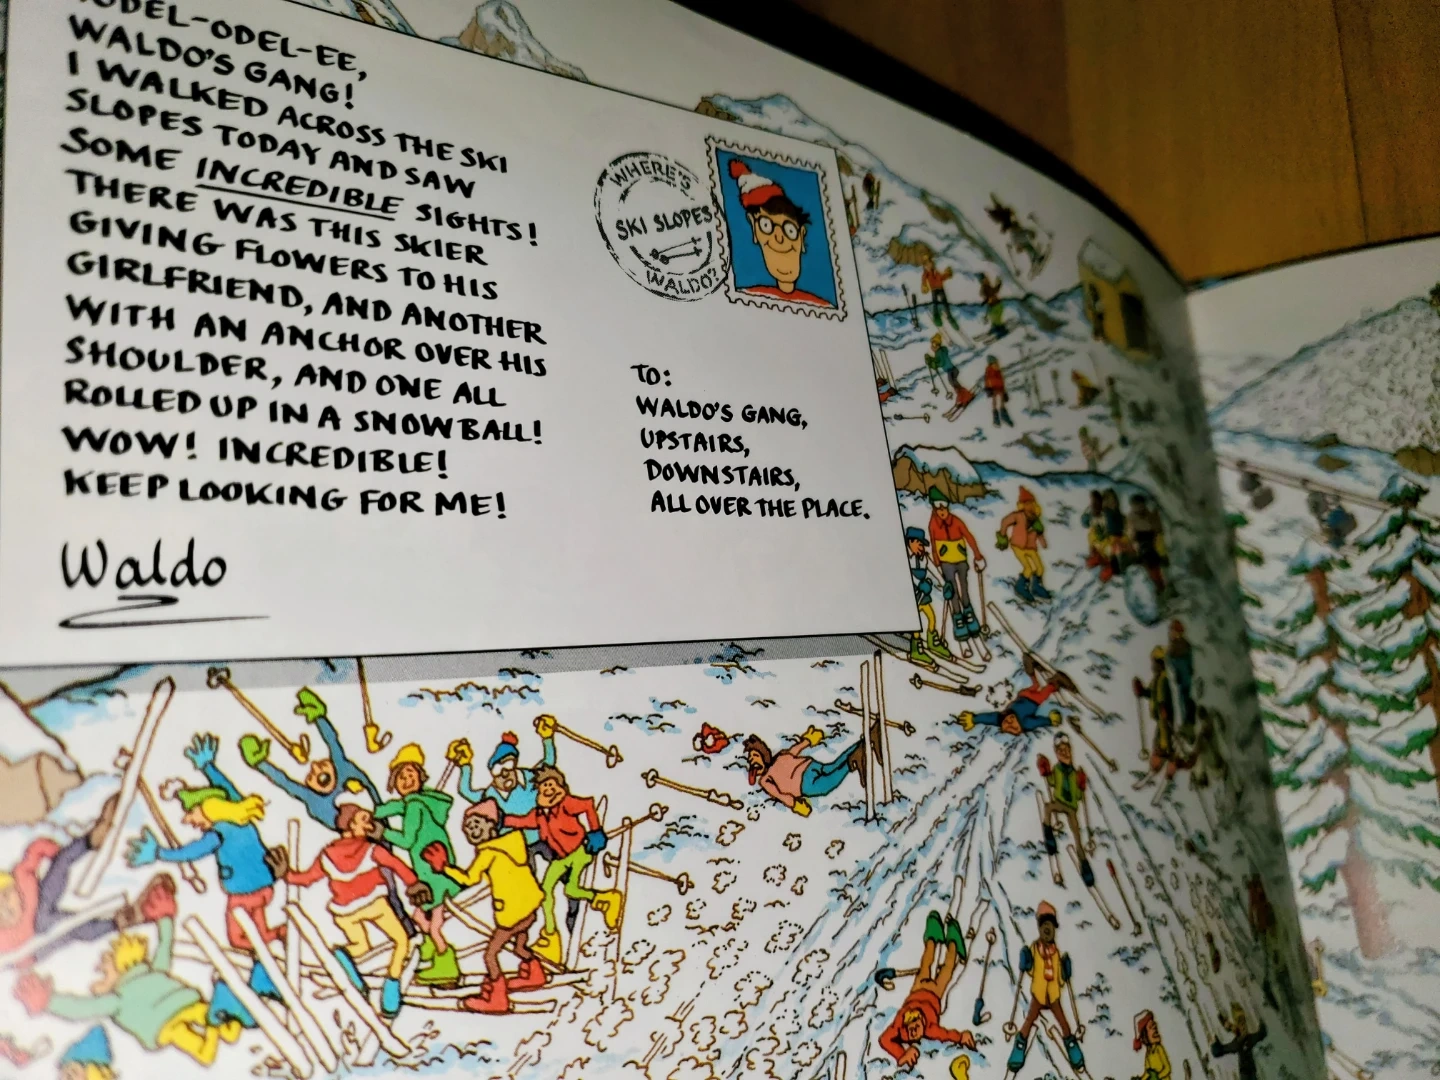 ODEL-ODEL-EE,
WALDO'S GANG!
I WALKED ACROSS THE SKI
SLOPES TODAY AND SAW
SOME INCREDIBLE SIGHTS!
THERE WAS THIS SKIER
GIVING FLOWERS TO HIS
GIRLFRIEND, AND ANOTHER
WITH AN ANCHOR OVER HIS
SHOULDER, AND ONE ALL
ROLLED UP IN A SNOWBALL!
WOW! INCREDIBLE!
KEEP LOOKING FOR ME!
Waldo
WHERE'S
SKI SLOPES
WALDO?
TO:
WALDO'S GANG,
UPSTAIRS,
DOWNSTAIRS,
ALL OVER THE PLACE.